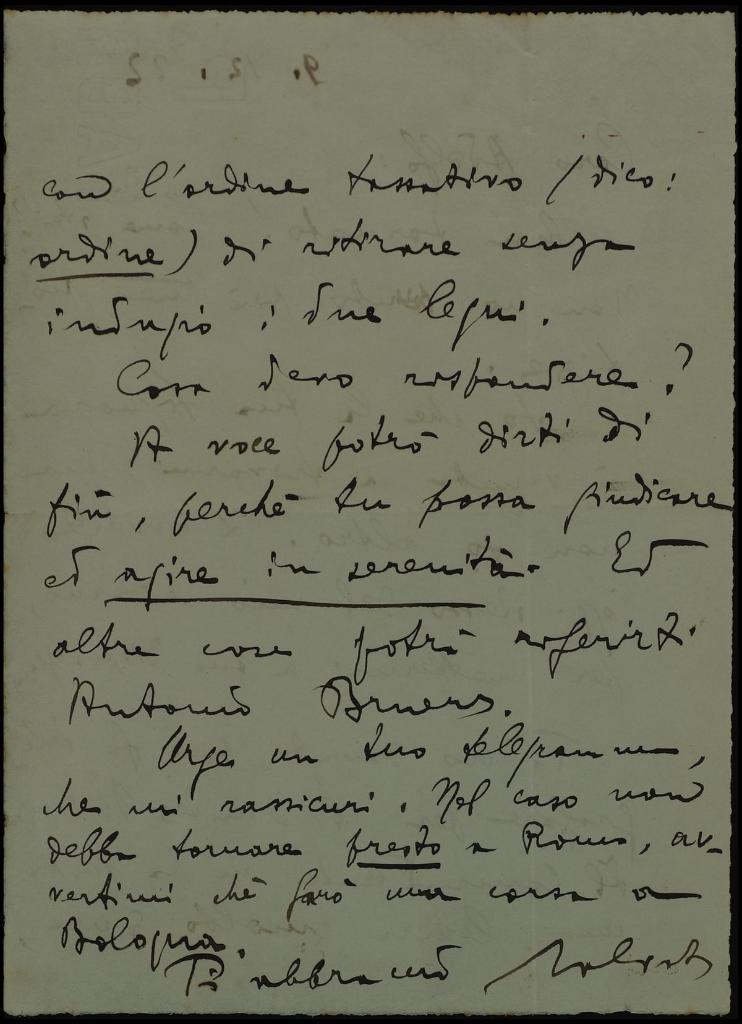 con l'ordine tassativo (dico:
ordine) di ritirare senza
indugio i due legni.
Cosa devo rispondere?
A voce potrò dirti di
più, perchè tu possa giudicare
ed agire in serenità. Ed
altre cose potrà riferirti
Antonio Bruers.
Urge un tuo telegramma,
che mi rassicuri. Nel caso non
debba tornare presto a Roma, av-
vertimi chè farò una corsa a
Bologna.
Ti abbraccio